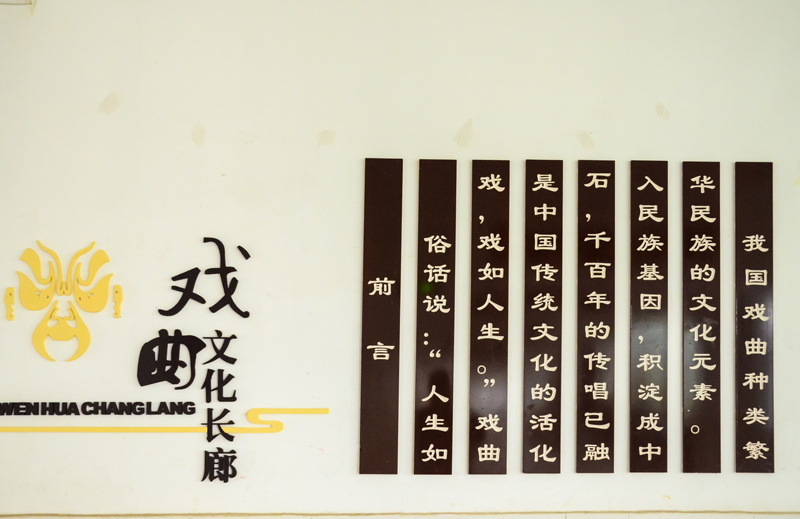 戏曲
文化长廊
WEN HUA CHANG LANG
前言
俗话说：“人生如
戏，戏如人生。”戏曲
是中国传统文化的活化
石，千百年的传唱已融
入民族基因，积淀成中
华民族的文化元素。
我国戏曲种类繁